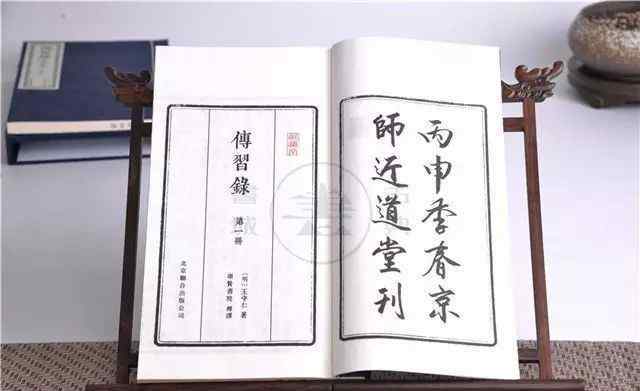 丙申季春京
師近道堂刊
傳習錄
第一冊
［明］王守仁 著
崇賢書院 釋譯
北京聯合出版公司